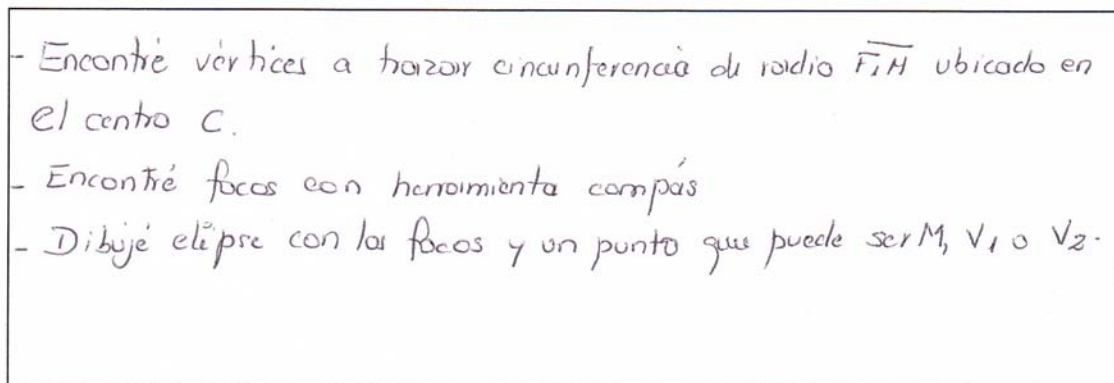 - Encontré vértices a trazar cincunferencia de radio F₁M ubicado en
el centro C.
- Encontré focos con herramienta compás
- Dibujé elipse con los focos y un punto que puede ser M, V₁ o V₂.